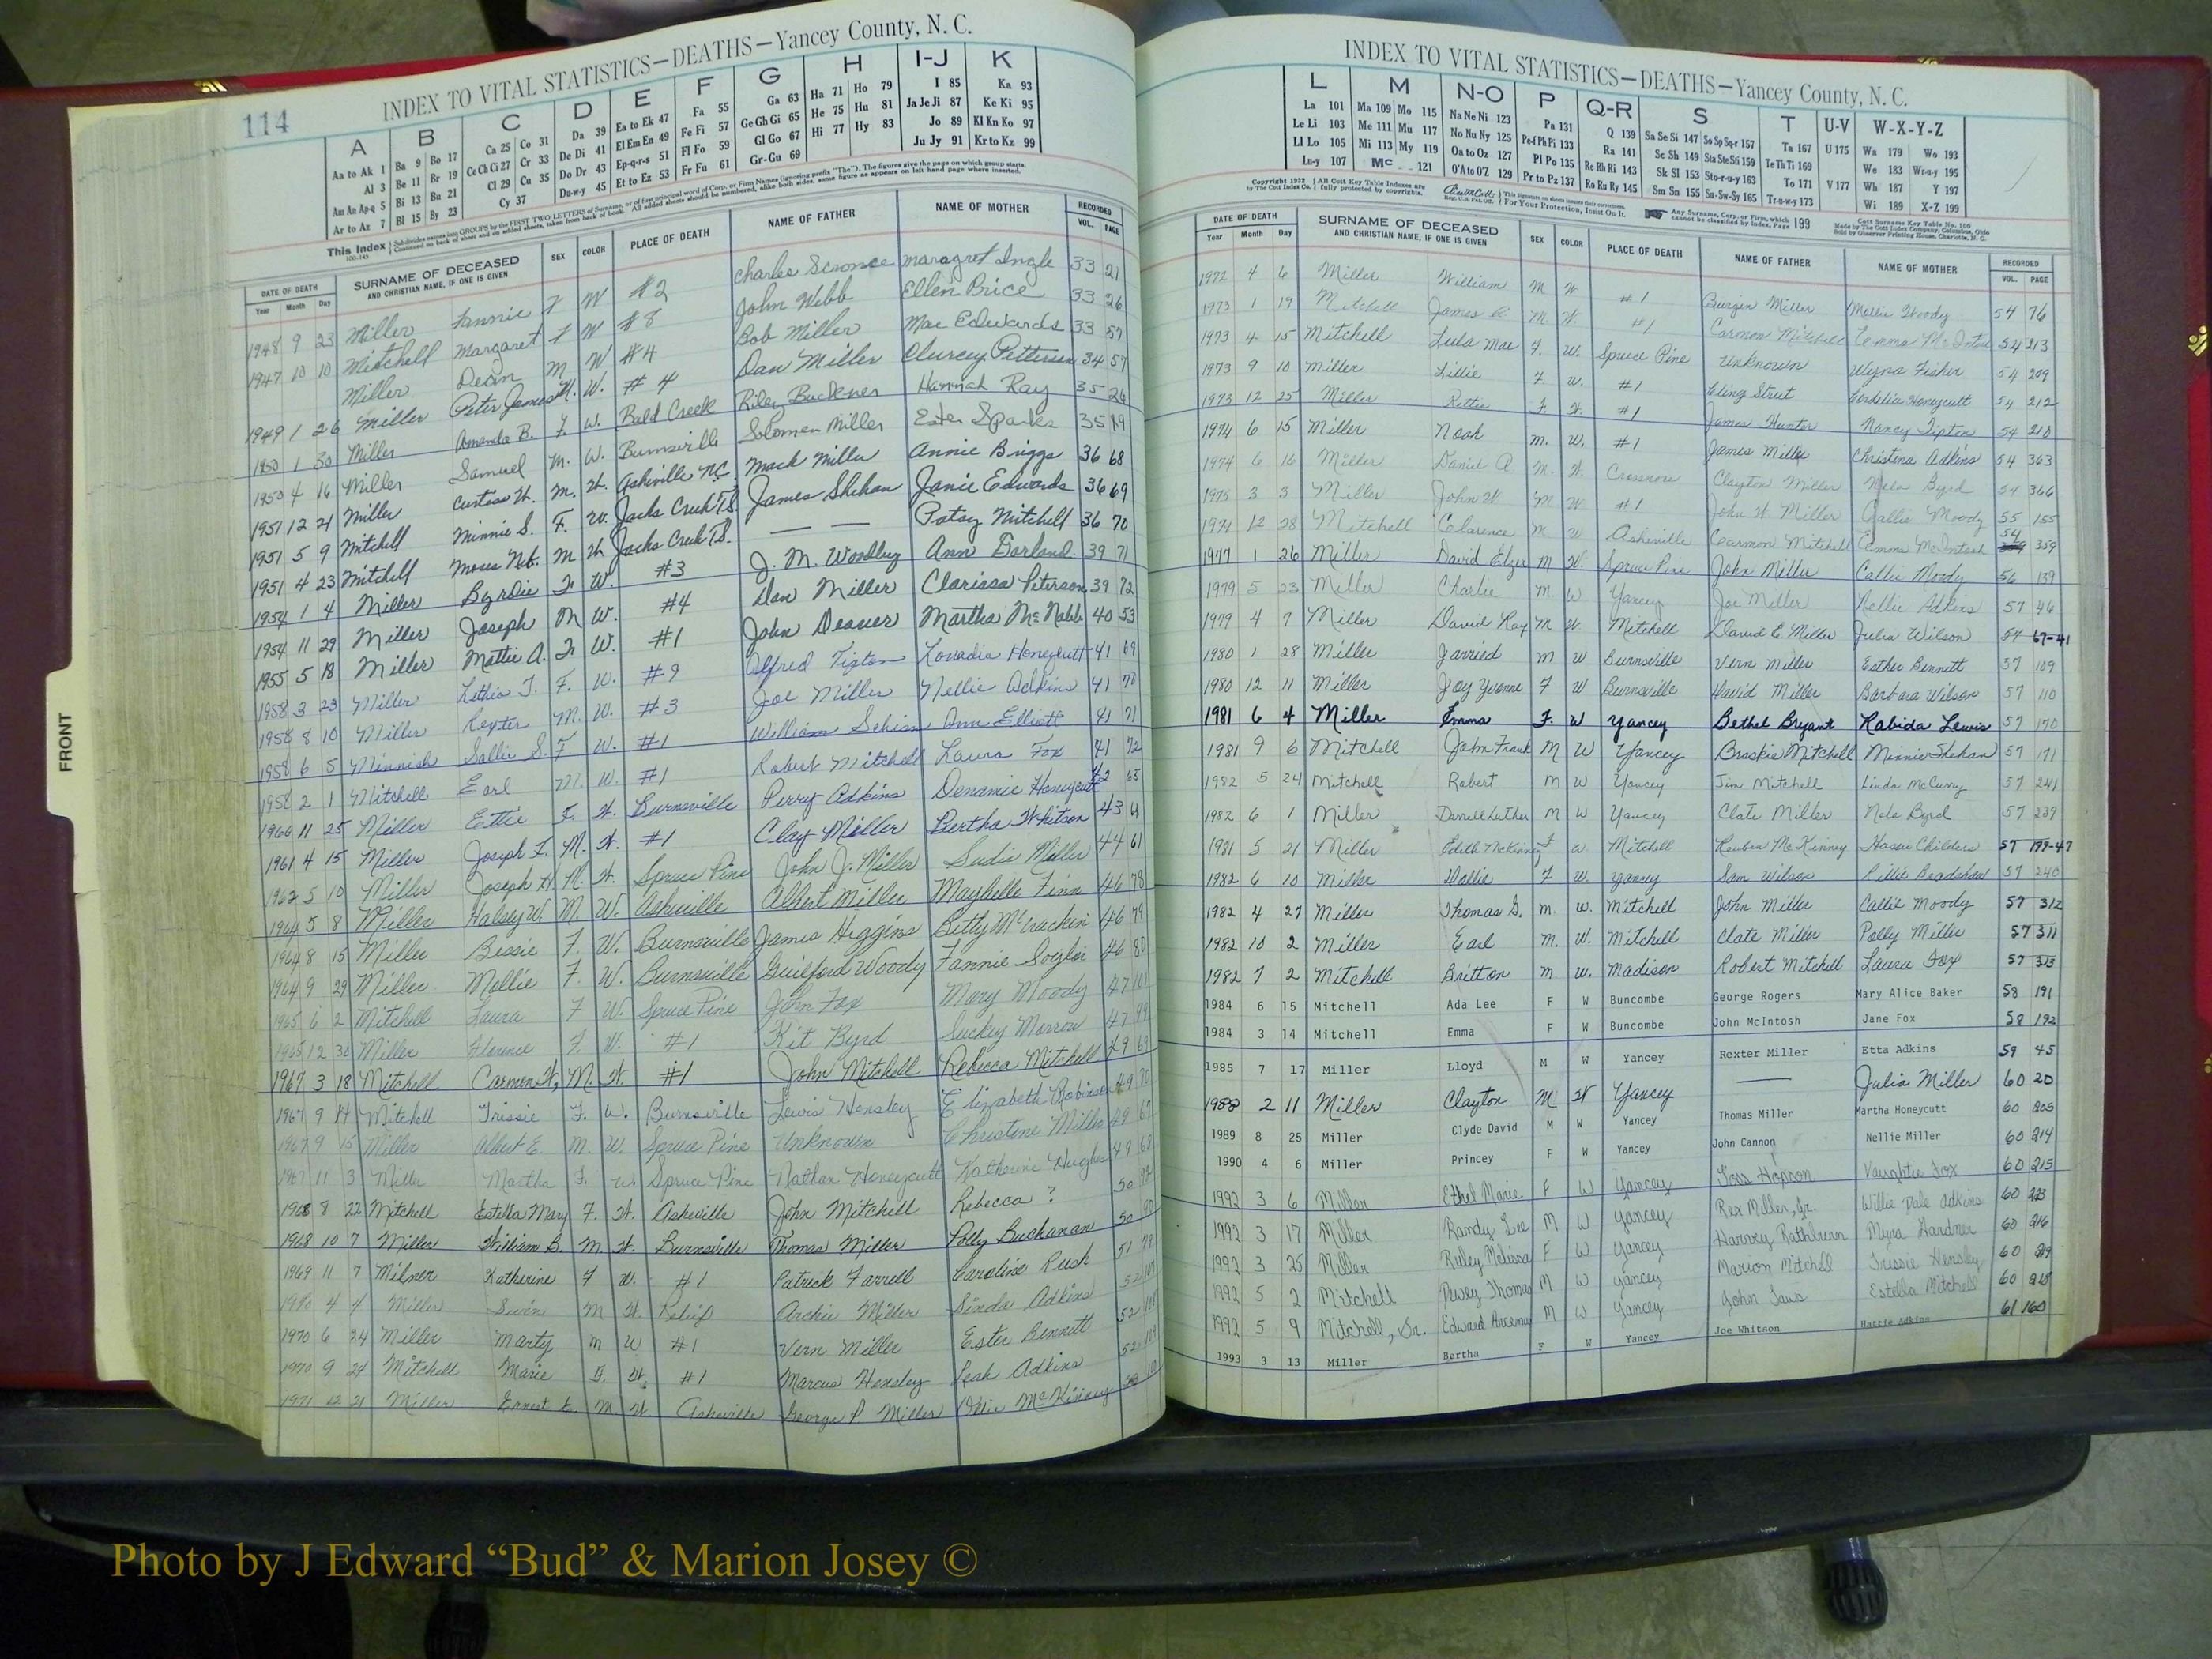 114
INDEX TO VITAL STATISTICS—DEATHS—Yancey County, N. C.
A B C D E F G H I-J K
Aa to Ak 1 Ba 9 Bo 17 Ca 25 Co 31 Da 39 Ea to Ek 47 Fa 55 Ga 63 Ha 71 Ho 79 I 85 Ka 93
Al 3 Be 11 Br 19 Ce Ch Ci 27 Cr 33 De Di 41 El Em En 49 Fe Fi 57 Ge Gh Gi 65 He 75 Hu 81 Ja Je Ji 87 Ke Ki 95
Am An Ap-q 5 Bi 13 Bu 21 Cl 29 Cu 35 Do Dr 43 Ep-q-r-s 51 Fl Fo 59 Gl Go 67 Hi 77 Hy 83 Jo 89 Kl Kn Ko 97
Ar to Az 7 Bl 15 By 23 Cy 37 Du-w-y 45 Et to Ez 53 Fr Fu 61 Gr-Gu 69 Ju Jy 91 Kr to Kz 99
This Index
DATE OF DEATH SURNAME OF DECEASED SEX COLOR PLACE OF DEATH NAME OF FATHER NAME OF MOTHER RECORDED
Year Month Day AND CHRISTIAN NAME, IF ONE IS GIVEN VOL. PAGE
1948 9 23 Miller Fannie F W #2 Charles Scronce Maragret Ingle 33 21
1947 10 10 Mitchell Margaret F W #8 John Webb Ellen Price 33 26
Miller Dean M W #4 Bob Miller Mae Edwards 33 57
1949 1 26 Miller Peter James M. W. #4 Dan Miller Patterson 34 57
1950 1 30 Miller Amanda B. F. W. Bald Creek Riley Buckner Hannah Ray 35 26
1950 4 16 Miller Samuel M. W. Burnsville Solomon Miller Ester Sparks 35
1951 12 21 Miller Curtiss W. M. W. Asheville N.C. Mack Miller Annie Briggs 36 68
1951 5 9 Mitchell Minnie S. F. W. Jacks Creek T.S. James Shehan Janie Edwards 36 69
1951 4 23 Mitchell M W Jacks Creek T.S. — — Patsy Mitchell 36 70
1954 1 4 Miller Byrdie F W. #3 J. M. Woodby Ann Garland 39 71
1954 11 29 Miller Joseph M W. #4 Dan Miller Clarissa Peterson 39 72
1955 5 18 Miller Mattie A. F W. #1 John Deaver Martha McNabb 40 53
1958 3 23 Miller Lethia T. F. W. #9 Alfred Tipton Honeycutt 41 69
1958 8 10 Miller Rexter M. W. #3 Joe Miller Nellie Adkins 41 70
1958 6 5 Minnish Sallie S. F W. #1 William Ann Elliott 41 71
1958 2 1 Mitchell Earl M. W. #1 Robert Mitchell Laura Fox 41 72
1960 11 25 Miller Ettie F. W. Burnsville Perry Adkins Honeycutt 42 65
1961 4 15 Miller Joseph F. M. W. #1 Clay Miller Bertha Whitson 43 64
1962 5 10 Miller Joseph H. M. W. Spruce Pine John J. Miller Sudie Miller 44 61
1964 5 8 Miller Halsey W. M. W. Asheville Albert Miller Maybelle Finn 46 78
1964 8 15 Miller Bessie F. W. Burnsville James Higgins Betty McCrackin 46 79
1964 9 29 Miller Mollie F. W. Burnsville Guilford Woody Fannie 46 80
1965 6 2 Mitchell Laura F W. Spruce Pine John Fox Mary Moody 47 101
1965 12 30 Miller Florence F. W. #1 Kit Byrd Suckey Morrow 47 99
1967 3 18 Mitchell Carmon W. M. W. #1 John Mitchell Rebecca Mitchell 49 69
1967 9 14 Mitchell Trissie F. W. Burnsville Lewis Hensley Elizabeth Robinson 49 70
1967 9 15 Miller Albert E. M. W. Spruce Pine Unknown Christine Miller 49 67
1967 11 3 Miller Martha F. W. Spruce Pine Nathan Honeycutt Katherine Hughes 49 68
1968 8 22 Mitchell Estella Mary F. W. Asheville John Mitchell Rebecca ? 50
1968 10 7 Miller William B. M W. Burnsville Thomas Miller Polly Buchanan 50
1969 11 7 Milner Katherine F W. #1 Patrick Farrell Caroline Rush 51
4 4 Miller M W. Archie Miller Adkins 52
1970 6 24 Miller Marty M W #1 Vern Miller Ester Bennett 52
1970 9 24 Mitchell Marie F. W. #1 Marcus Hensley Leah Adkins 52
1971 12 21 Miller Ernest E. M. W. Asheville George P Miller Ollie McKinney
FRONT
INDEX TO VITAL STATISTICS—DEATHS—Yancey County, N. C.
L M N-O P Q-R S T U-V W-X-Y-Z
La 101 Ma 109 Mo 115 Na Ne Ni 123 Pa 131 Q 139 Sa Se Si 147 So Sp Sq-r 157 Ta 167 U 175 Wa 179 Wo 193
Le Li 103 Me 111 Mu 117 No Nu Ny 125 Pe-f Ph Pi 133 Ra 141 Sc Sh 149 Sta Ste Sti 159 Te Th Ti 169 We 183 Wr-u-y 195
Ll Lo 105 Mi 113 My 119 Oa to Oz 127 Pl Po 135 Re Rh Ri 143 Sk Sl 153 Sto-r-u-y 163 To 171 V 177 Wh 187 Y 197
Lu-y 107 Mc 121 O'A to O'Z 129 Pr to Pz 137 Ro Ru Ry 145 Sm Sn 155 Su-Sw-Sy 165 Tr-u-w-y 173 Wi 189 X-Z 199
DATE OF DEATH SURNAME OF DECEASED SEX COLOR PLACE OF DEATH NAME OF FATHER NAME OF MOTHER RECORDED
Year Month Day AND CHRISTIAN NAME, IF ONE IS GIVEN VOL. PAGE
1972 4 6 Miller William M W #1 Burger Miller Mollie Woody 54 76
1973 1 19 Mitchell James R M W. #1 Carmon Mitchell Emma McIntosh 54 213
1973 4 15 Mitchell Lula Mae F. W. Spruce Pine Unknown Fisher 54 209
1973 9 10 Miller Lillie F W. #1 Street Cordelia Honeycutt 54 212
1973 12 25 Miller F. W. #1 James Hunter Nancy Tipton 54 210
1974 6 15 Miller Noah M. W. #1 James Miller Christena Adkins 54 363
1974 6 16 Miller Daniel A M. W. Crossnore Clayton Miller Nola Byrd 54 366
1975 3 3 Miller John W M W. #1 John W Miller Callie Moody 55 155
1974 12 28 Mitchell Clarence M W Asheville Carmon Mitchell Emma McIntosh 54 359
1977 1 26 Miller David Elzer M W. Spruce Pine John Miller Callie Moody 56 139
1979 5 23 Miller Charlie M W Yancey Joe Miller Nellie Adkins 57 46
1979 4 7 Miller David Ray M W Mitchell David E. Miller Julia Wilson 54 67-41
1980 1 28 Miller Jarried M W Burnsville Vern Miller Esther Bennett 57 109
1980 12 11 Miller Joy Yvonne F W Burnsville David Miller Barbara Wilson 57 110
1981 6 4 Miller Emma F. W Yancey Bethel Bryant Rabida Lewis 57 170
1981 9 6 Mitchell John Frank M W Yancey Brockie Mitchell Minnie Shehan 57 171
1982 5 24 Mitchell Robert M W Yancey Jim Mitchell Linda McCurry 57 241
1982 6 1 Miller Darrell Luther M W Yancey Clate Miller Nola Byrd 57 239
1981 5 21 Miller Edith McKinney F W Mitchell Reuben McKinney Hassie Childers 57 199-47
1982 6 10 Miller Dollie F W. Yancey Sam Wilson Lillie Bradshaw 57 240
1982 4 27 Miller Thomas G. M. W. Mitchell John Miller Callie Moody 57 312
1982 10 2 Miller Earl M. W. Mitchell Clate Miller Polly Miller 57 311
1982 7 2 Mitchell Britton M W. Madison Robert Mitchell Laura Fox 57 313
1984 6 15 Mitchell Ada Lee F W Buncombe George Rogers Mary Alice Baker 58 191
1984 3 14 Mitchell Emma F W Buncombe John McIntosh Jane Fox 58 192
1985 7 17 Miller Lloyd M W Yancey Rexter Miller Etta Adkins 59 45
1988 2 11 Miller Clayton M W Yancey —— Julia Miller 60 20
1989 8 25 Miller Clyde David M W Yancey Thomas Miller Martha Honeycutt 60 205
1990 4 6 Miller Princey F W Yancey John Cannon Nellie Miller 60 214
1992 3 6 Miller Ethel Marie F W Yancey Hopson Vaughtie Fox 60 215
1992 3 17 Miller Randy Lee M W Yancey Rex Miller, Jr. Willie Dale Adkins 60 223
1992 3 25 Miller Ruley Melissa F W Yancey Harvey Rathburn Myra Gardner 60 216
1992 5 2 Mitchell Dewey Thomas M W Yancey Marion Mitchell Trissie Hensley 60 219
1992 5 9 Mitchell, Sr. Edward M W Yancey John Laws Estella Mitchell 60 218
1993 3 13 Miller Bertha F W Yancey Joe Whitson Hattie Adkins 61 160
Photo by J Edward “Bud” & Marion Josey ©